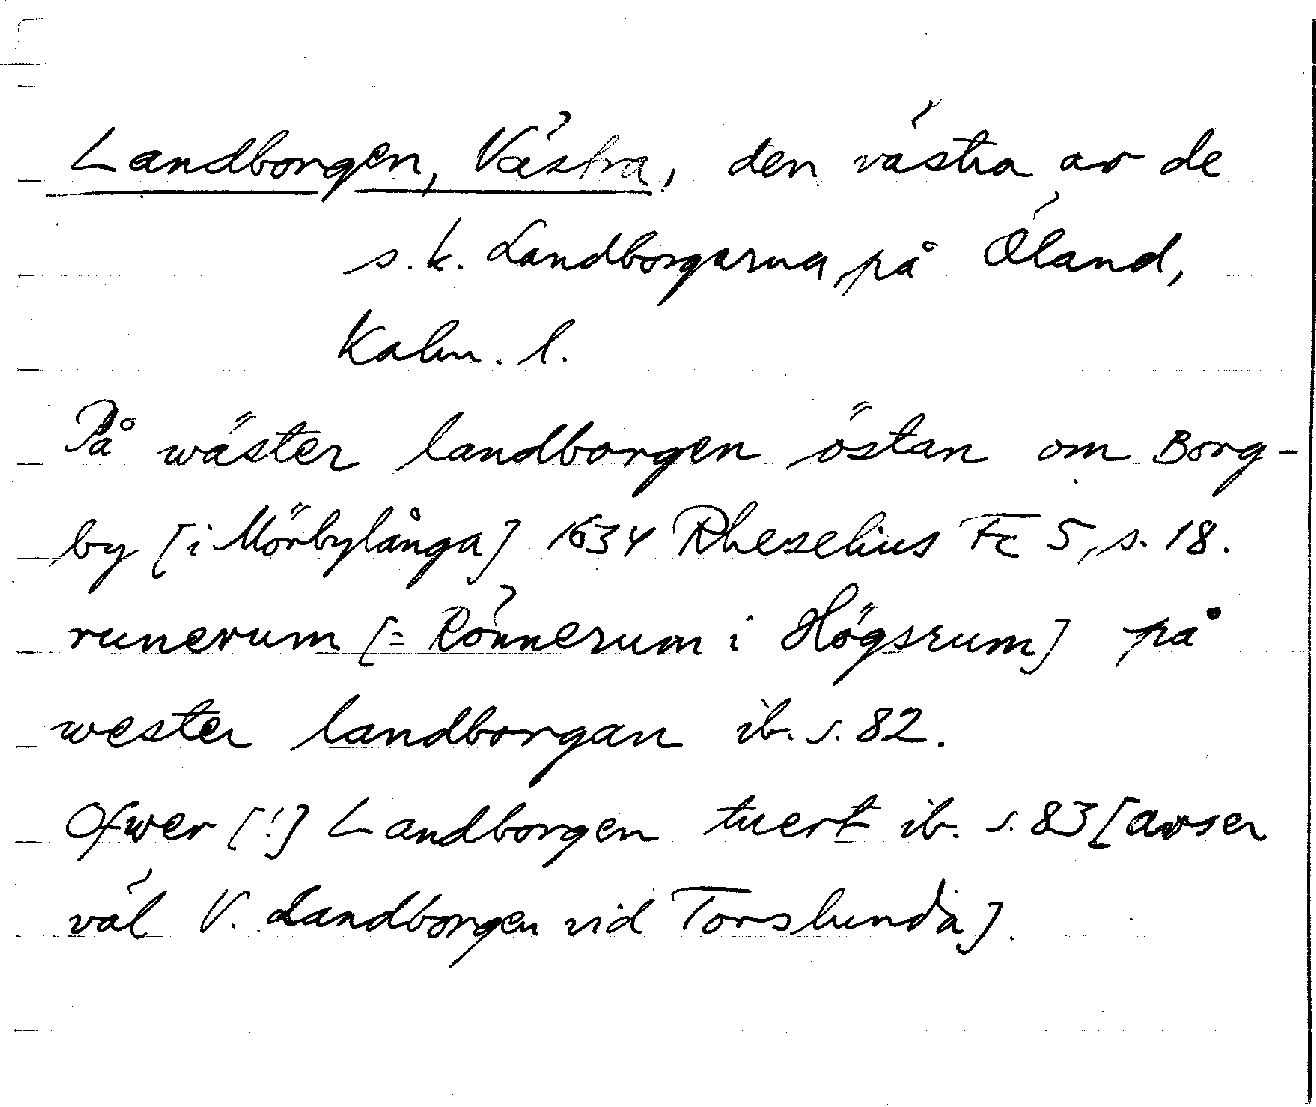 Landborgen, Västra, den västra av de
s.k. Landborgarna på Öland,
Kalm. l.
På wäster landborgen östan om Borg-
by [i Mörbylånga] 1634 Rhezelius Fc 5, s. 18.
runerum [= Rönnerum i Högsrum] på
wester landborgan ib. s. 82.
Ofwer [!] Landborgen tuert ib. s. 83 [avser
väl V. Landborgen vid Torslunda].